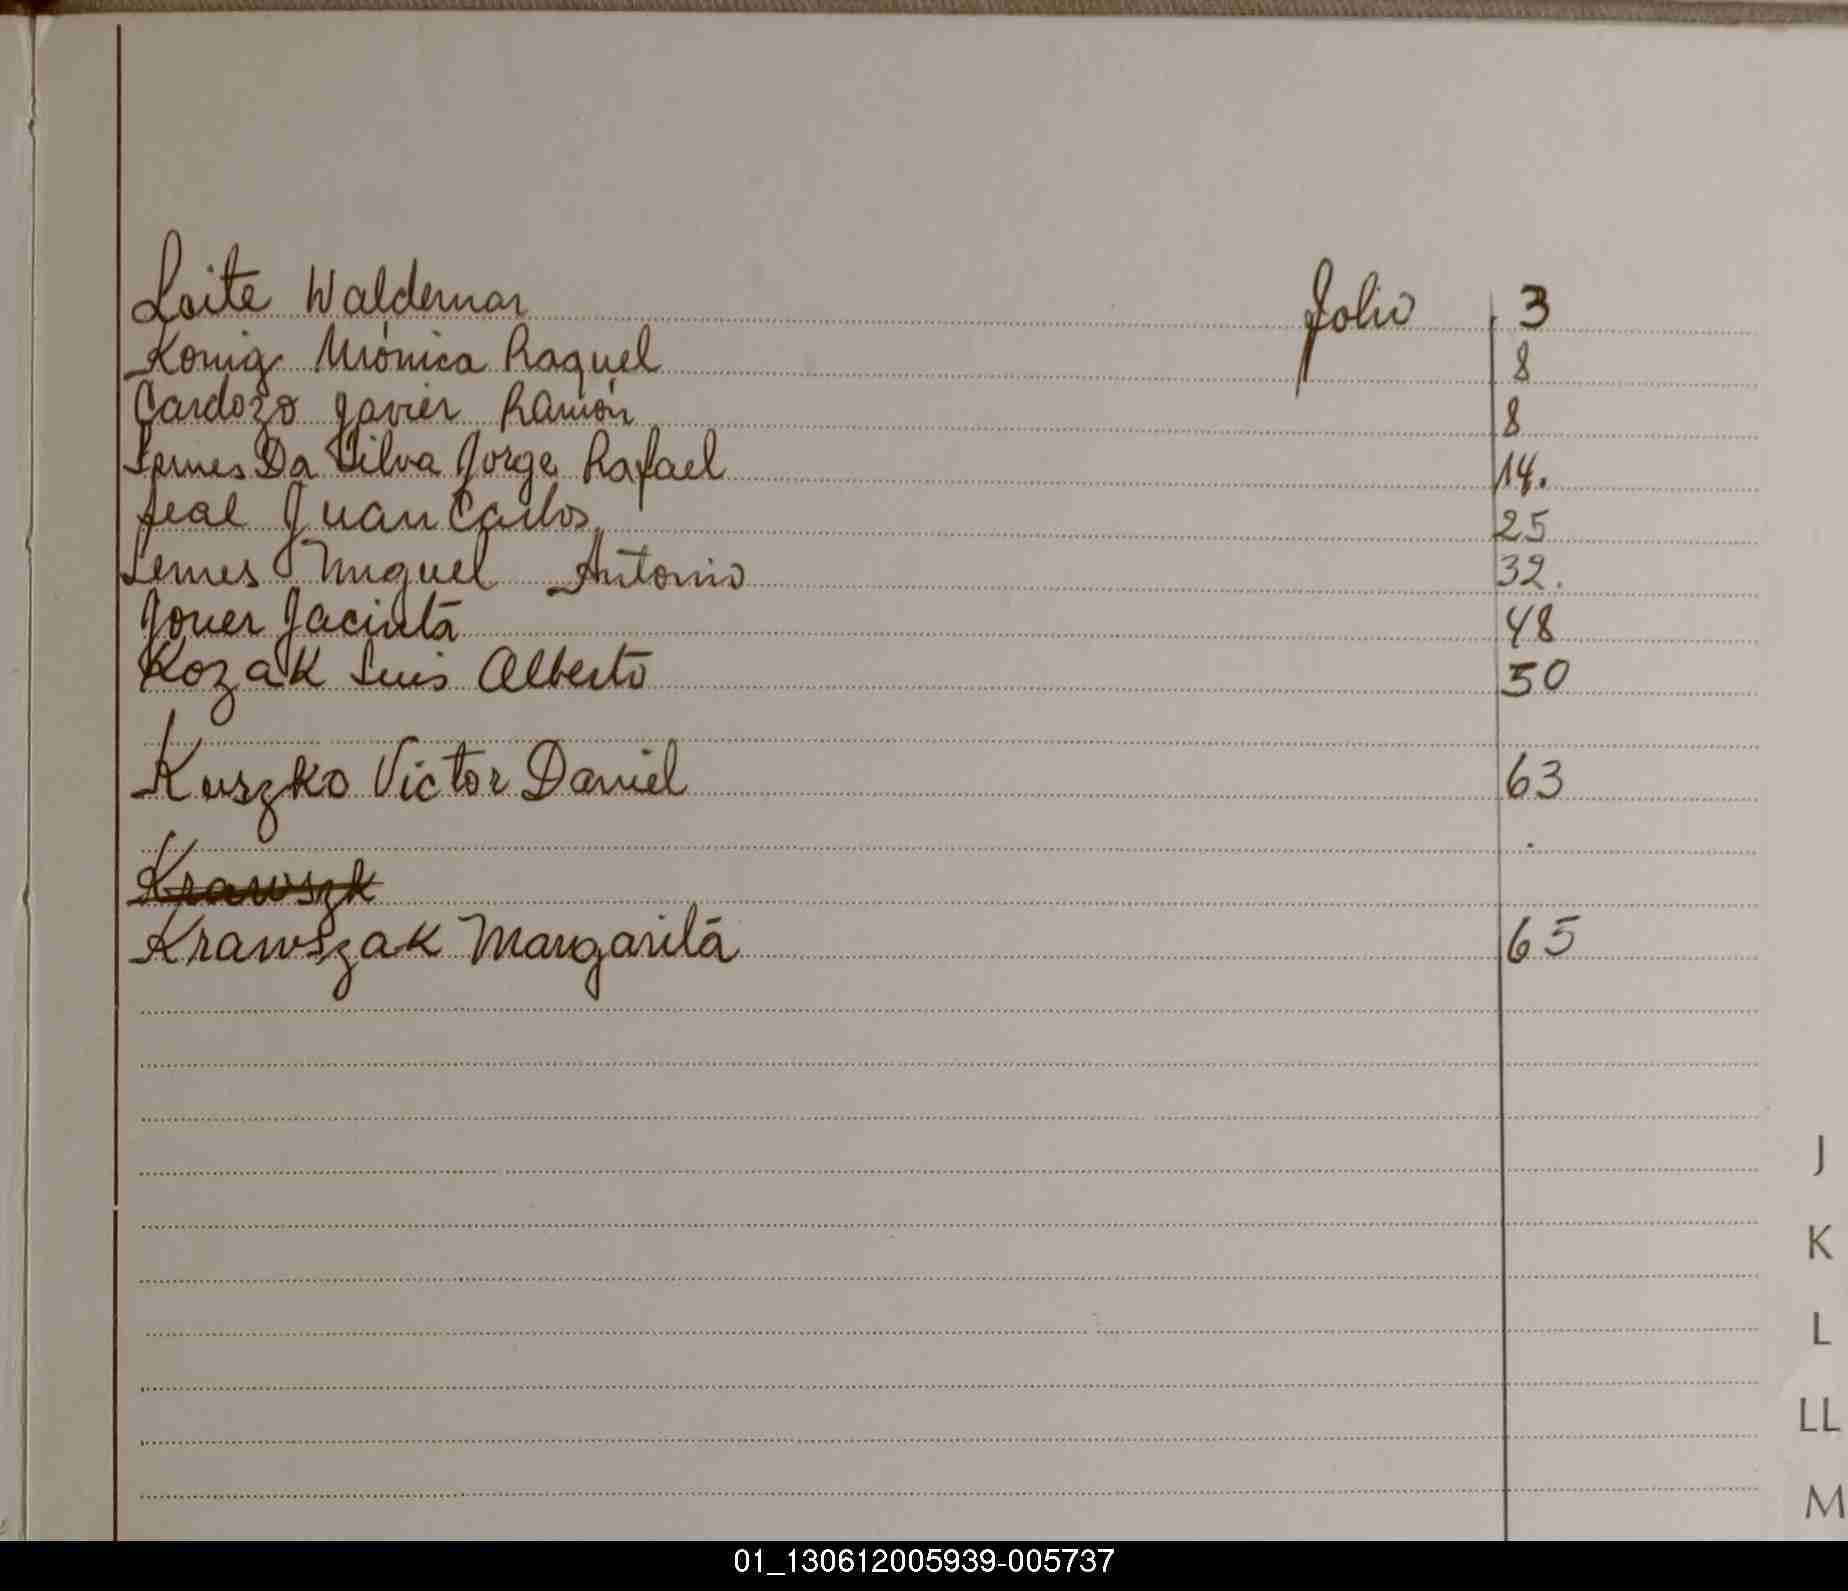 Loite Waldemar folio 3
Konig Mónica Raquel 8
Cardozo Javier Ramón 8
Lemes Da Silva Jorge Rafael 14.
Leal Juan Carlos 25
Lemes Miguel Antonio 32.
Jover Jacinta 48
Kozak Luis Alberto 50
Kuszko Victor Daniel 63
Krawszk
Krawszak Margarita 65
J
K
L
LL
M
01_130612005939-005737